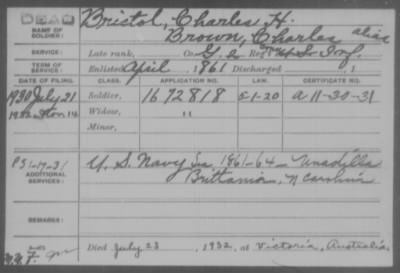 DEAD
NAME OF SOLDIER:
Bristol, Charles H.
Brown, Charles alias
SERVICE:
Late rank, Co. G. 2 Reg't U.S. Inf.
TERM OF SERVICE:
Enlisted April , 1861 Discharged , 1
DATE OF FILING.
CLASS.
APPLICATION NO.
LAW.
CERTIFICATE NO.
1930 July 21
Soldier, 1672818 5-1-20 a 11-30-31
1932 Nov 14
Widow, "
Minor,
P 51-17-31
ADDITIONAL SERVICES:
U. S. Navy 1861-64 - Unadilla
Brittania, N Carolina
REMARKS:
Died July 23 , 1932, at Victoria, Australia